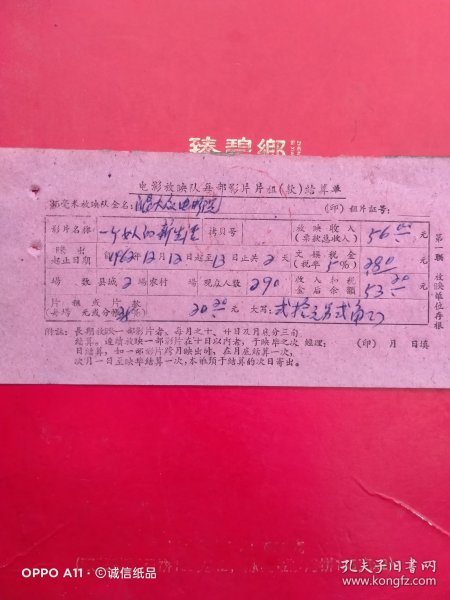 臻碧鄉
电影放映队每部影片片租(款)结算单
35毫米放映队全名: 大众电影院 (印) 租片证号:
影片名称 一个女人的新生活 拷贝号 放映收入(票款总收入) 56.00 元
映出起止日期 1963年12月12日起至13日止共2天 文娱税金(税率5%) 280 元
场数 县城2场农村 场 观众人数 290 收入扣税金后余额 53.20 元
片租或片款(每场 元或分帐38%) 20.20 大写: 贰拾元另贰角
附注: 长期放映一部影片者、每月之十、廿日及月底分三次
结算。连续放映一部影片在十日以内者,于映毕之次 经理: (印) 月 日填
日结算,如一部影片跨月映出时、在月底结算一次,
次月一日至映毕结算一次,本单须于结算的次日寄出。
第一联 放映单位存根
OPPO A11 · ©诚信纸品
孔夫子旧书网
www.kongfz.com